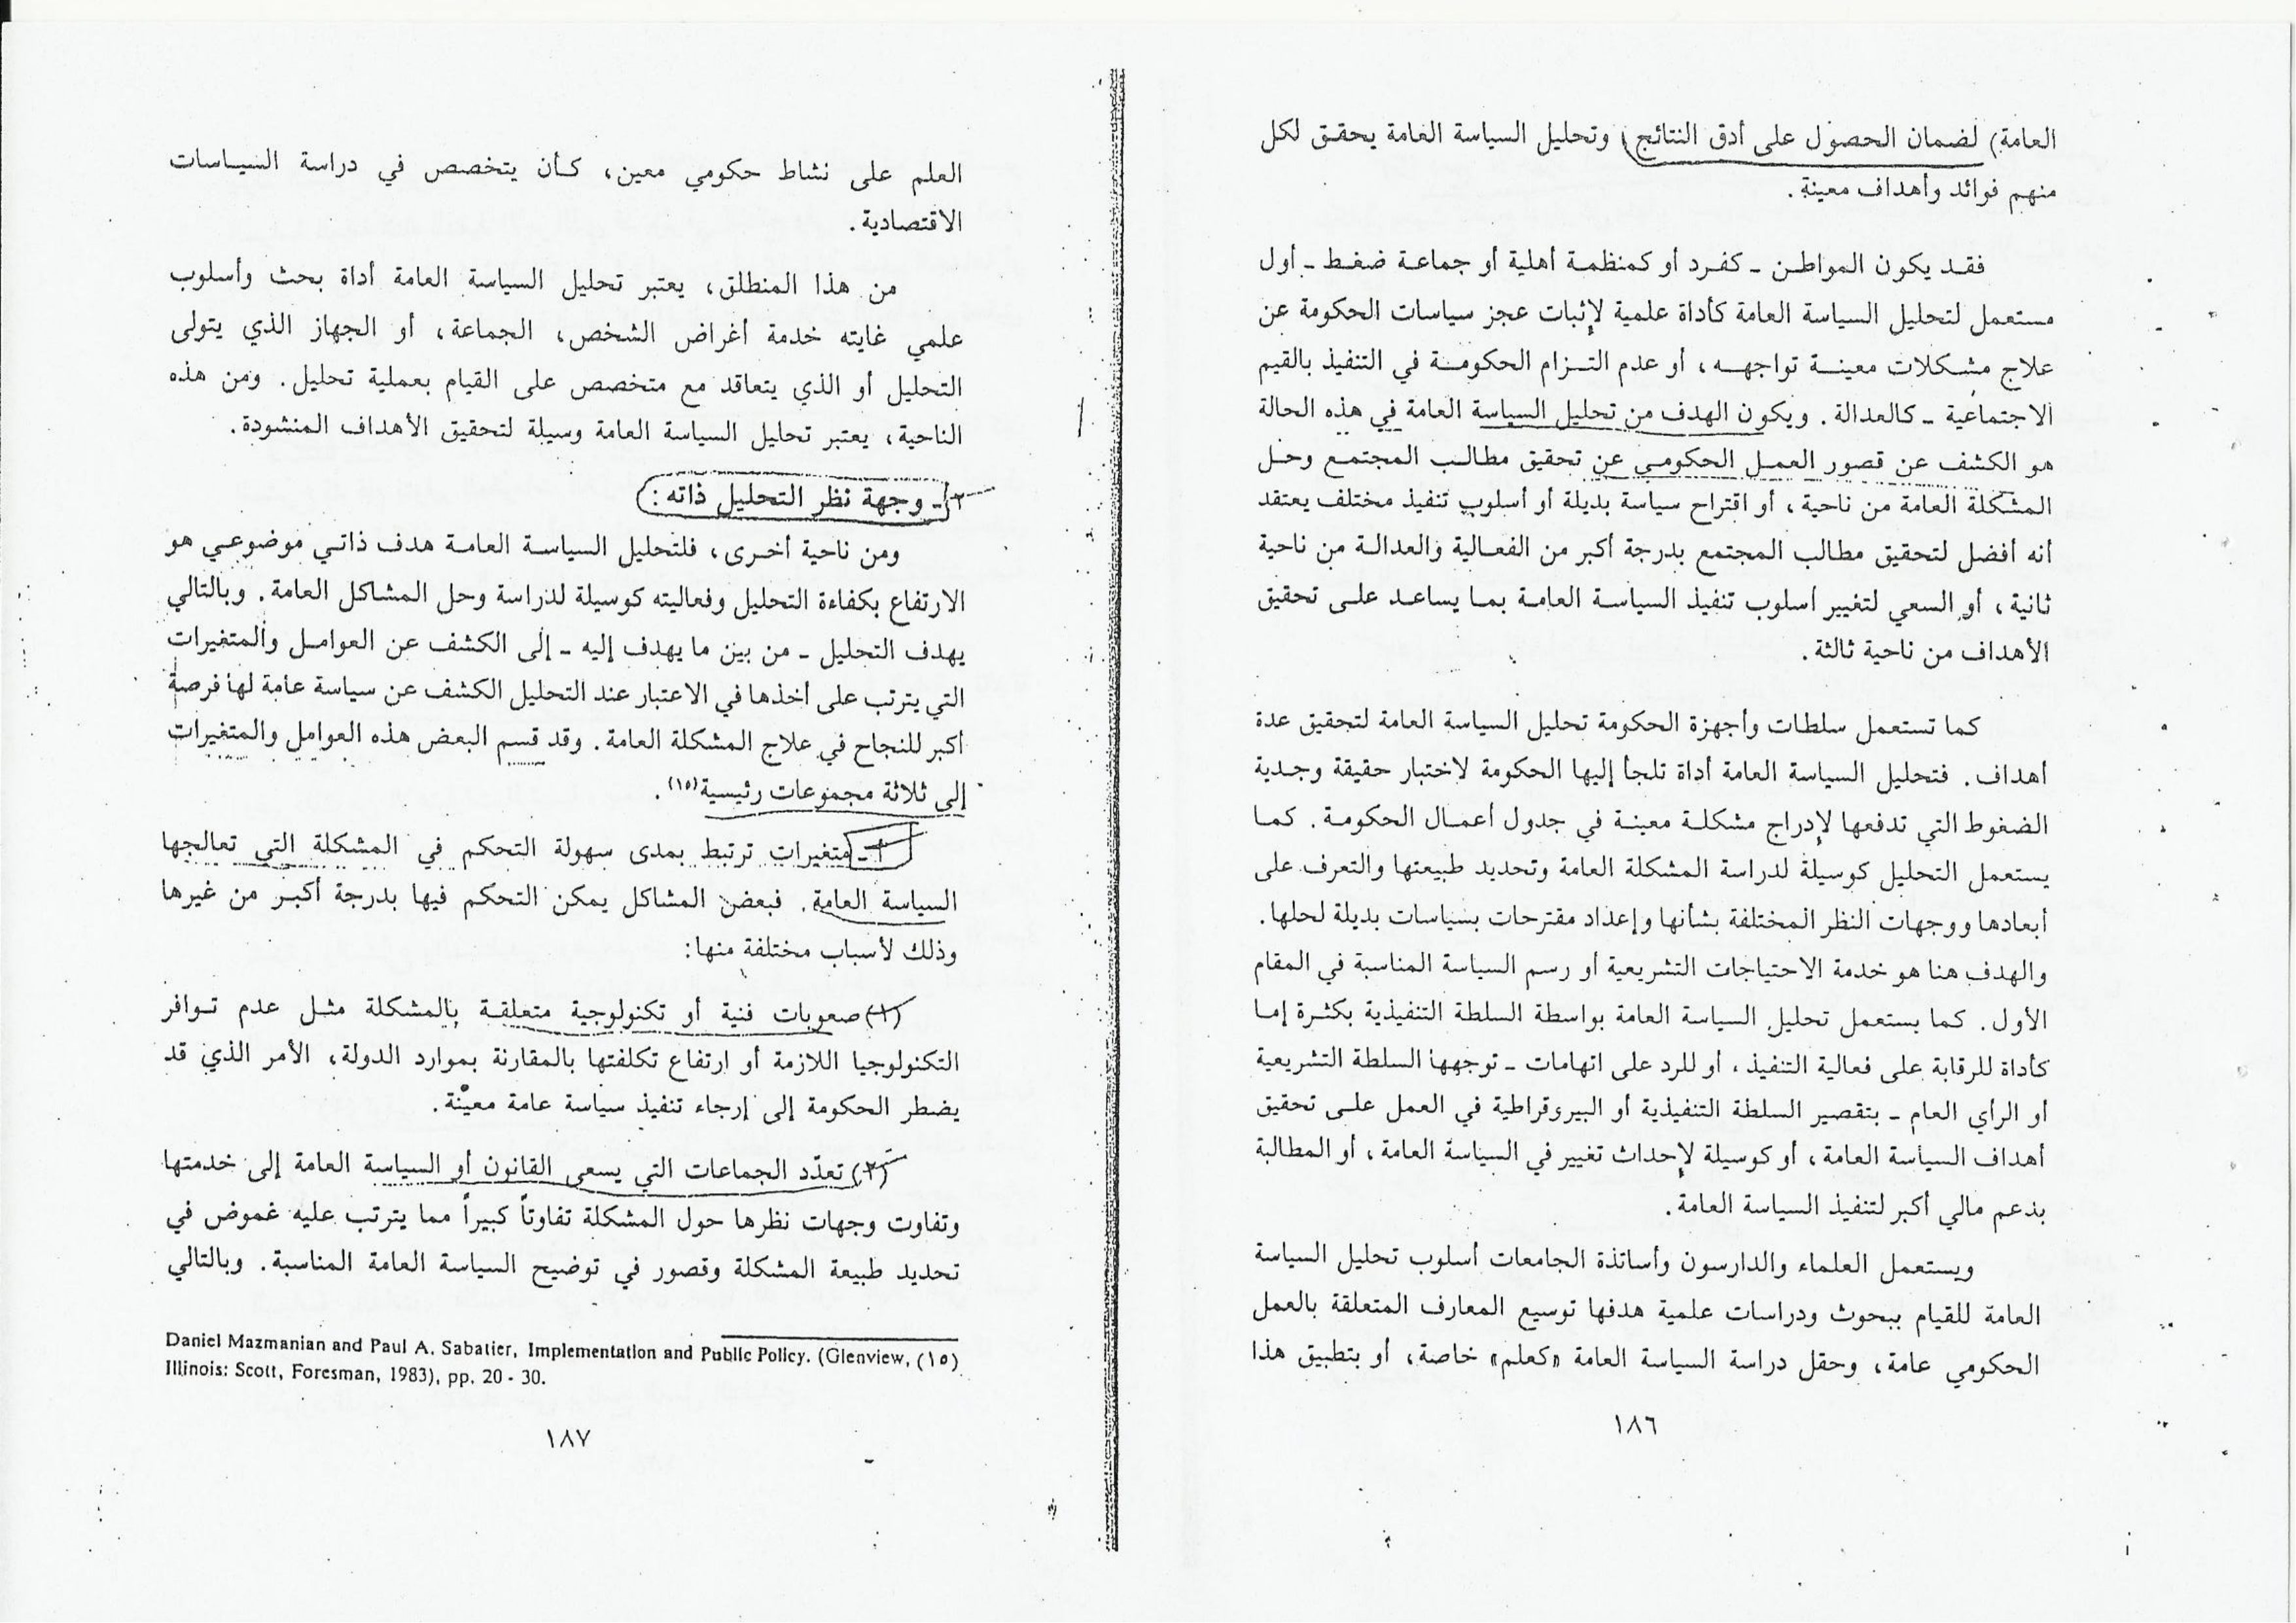 العامة) لضمان الحصول على أدق النتائج) وتحليل السياسة العامة يحقق لكل
منهم فوائد وأهداف معينة.
فقد يكون المواطن - كفرد أو كمنظمة أهلية أو جماعة ضغط - أول
مستعمل لتحليل السياسة العامة كأداة علمية لإثبات عجز سياسات الحكومة عن
علاج مشكلات معينة تواجهه، أو عدم التزام الحكومة في التنفيذ بالقيم
الاجتماعية - كالعدالة. ويكون الهدف من تحليل السياسة العامة في هذه الحالة
هو الكشف عن قصور العمل الحكومي عن تحقيق مطالب المجتمع وحل
المشكلة العامة من ناحية، أو اقتراح سياسة بديلة أو أسلوب تنفيذ مختلف يعتقد
أنه أفضل لتحقيق مطالب المجتمع بدرجة أكبر من الفعالية والعدالة من ناحية
ثانية، أو السعي لتغيير أسلوب تنفيذ السياسة العامة بما يساعد على تحقيق
الأهداف من ناحية ثالثة.
كما تستعمل سلطات وأجهزة الحكومة تحليل السياسة العامة لتحقيق عدة
أهداف. فتحليل السياسة العامة أداة تلجأ إليها الحكومة لاختبار حقيقة وجدية
الضغوط التي تدفعها لإدراج مشكلة معينة في جدول أعمال الحكومة. كما
يستعمل التحليل كوسيلة لدراسة المشكلة العامة وتحديد طبيعتها والتعرف على
أبعادها ووجهات النظر المختلفة بشأنها وإعداد مقترحات بسياسات بديلة لحلها.
والهدف هنا هو خدمة الاحتياجات التشريعية أو رسم السياسة المناسبة في المقام
الأول. كما يستعمل تحليل السياسة العامة بواسطة السلطة التنفيذية بكثرة إما
كأداة للرقابة على فعالية التنفيذ، أو للرد على اتهامات - توجهها السلطة التشريعية
أو الرأي العام - بتقصير السلطة التنفيذية أو البيروقراطية في العمل على تحقيق
أهداف السياسة العامة، أو كوسيلة لإحداث تغيير في السياسة العامة، أو المطالبة
بدعم مالي أكبر لتنفيذ السياسة العامة.
ويستعمل العلماء والدارسون وأساتذة الجامعات أسلوب تحليل السياسة
العامة للقيام ببحوث ودراسات علمية هدفها توسيع المعارف المتعلقة بالعمل
الحكومي عامة، وحقل دراسة السياسة العامة «كعلم» خاصة، أو بتطبيق هذا
١٨٦
العلم على نشاط حكومي معين، كأن يتخصص في دراسة السياسات
الاقتصادية.
من هذا المنطلق، يعتبر تحليل السياسة العامة أداة بحث وأسلوب
علمي غايته خدمة أغراض الشخص، الجماعة، أو الجهاز الذي يتولى
التحليل أو الذي يتعاقد مع متخصص على القيام بعملية تحليل. ومن هذه
الناحية، يعتبر تحليل السياسة العامة وسيلة لتحقيق الأهداف المنشودة.
٢ - وجهة نظر التحليل ذاته:
ومن ناحية أخرى، فلتحليل السياسة العامة هدف ذاتي موضوعي هو
الارتفاع بكفاءة التحليل وفعاليته كوسيلة لدراسة وحل المشاكل العامة. وبالتالي
يهدف التحليل - من بين ما يهدف إليه - إلى الكشف عن العوامل والمتغيرات
التي يترتب على أخذها في الاعتبار عند التحليل الكشف عن سياسة عامة لها فرصة
أكبر للنجاح في علاج المشكلة العامة. وقد قسم البعض هذه العوامل والمتغيرات
إلى ثلاثة مجموعات رئيسية(١٥).
أ - متغيرات ترتبط بمدى سهولة التحكم في المشكلة التي تعالجها
السياسة العامة. فبعض المشاكل يمكن التحكم فيها بدرجة أكبر من غيرها
وذلك لأسباب مختلفة منها:
(١) صعوبات فنية أو تكنولوجية متعلقة بالمشكلة مثل عدم توافر
التكنولوجيا اللازمة أو ارتفاع تكلفتها بالمقارنة بموارد الدولة، الأمر الذي قد
يضطر الحكومة إلى إرجاء تنفيذ سياسة عامة معينّة.
(٢) تعدّد الجماعات التي يسعى القانون أو السياسة العامة إلى خدمتها
وتفاوت وجهات نظرها حول المشكلة تفاوتاً كبيراً مما يترتب عليه غموض في
تحديد طبيعة المشكلة وقصور في توضيح السياسة العامة المناسبة. وبالتالي
Daniel Mazmanian and Paul A. Sabatier, Implementation and Public Policy. (Glenview, (١٥)
Illinois: Scott, Foresman, 1983), pp. 20 - 30.
١٨٧